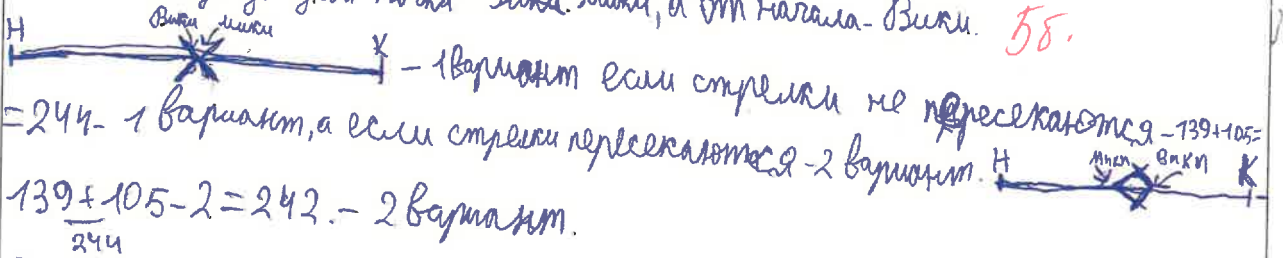 мики, а от начала - Вики. 5б.
Н Вики мики К - 1 вариант если стрелки не пересекаются - 139+105=
=244 - 1 вариант, а если стрелки пересекаются - 2 вариант. Н мики вики К
139+105-2=242. - 2 вариант.
244